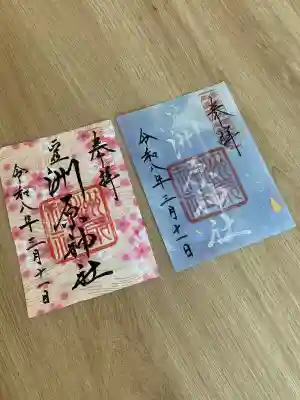 奉拝
洲原神社
令和八年三月十一日
奉拝
洲原神社
令和八年三月十一日